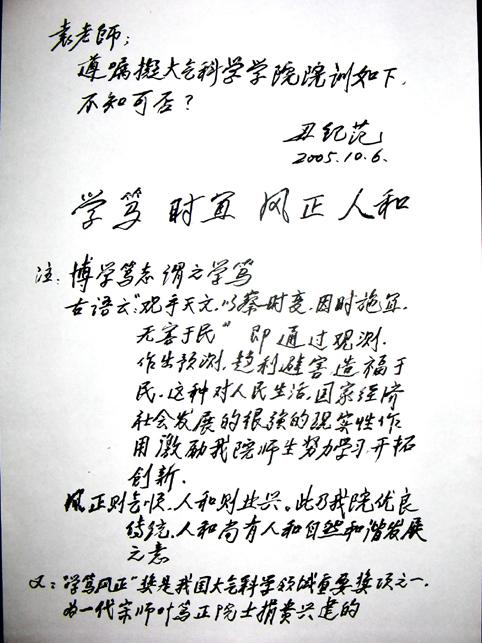 袁老师：
遵嘱拟大气科学学院院训如下，
不知可否？
丑纪范
2005.10.6.
学笃 时宜 风正 人和
注：博学笃志谓之学笃
古语云："观乎天文，以察时变，因时施宜，
无害于民" 即通过观测，
作出预测，趋利避害造福于
民，这种对人民生活，国家经济
社会发展的很强的现实性作
用激励我院师生努力学习，开拓
创新．
风正则气顺，人和则业兴。此乃我院优良
传统，人和尚有人和自然和谐发展
之意
又："学笃风正"奖是我国大气科学领域重要奖项之一．
为一代宗师叶笃正院士捐资兴建的